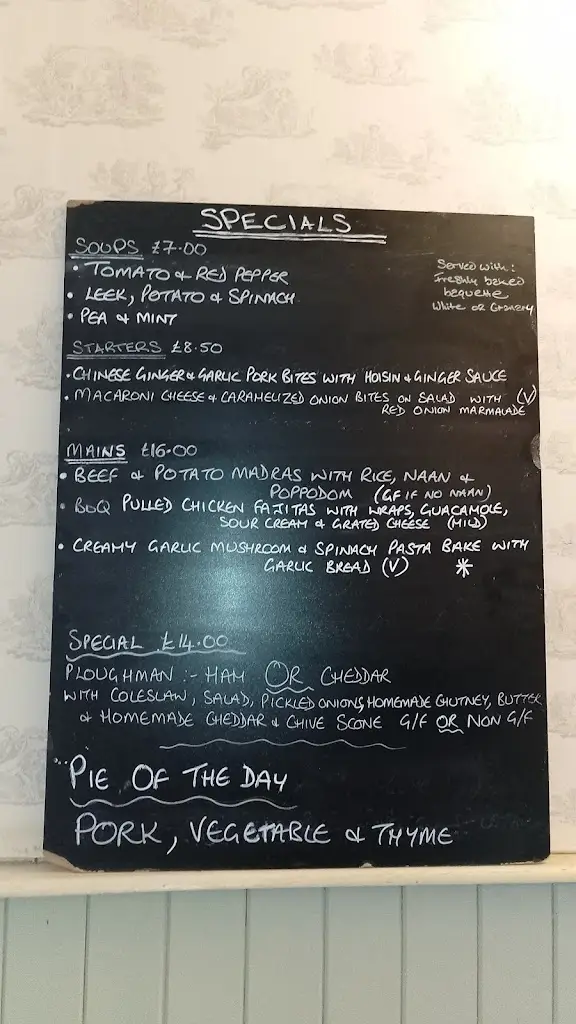 SPECIALS
SOUPS £7.00
• TOMATO & RED PEPPER
• LEEK, POTATO & SPINACH
• PEA & MINT
Served with:
Freshly baked
bequette
White or Granery
STARTERS £8.50
• CHINESE GINGER & GARLIC PORK BITES WITH HOISIN & GINGER SAUCE
• MACARONI CHEESE & CARAMELIZED ONION BITES ON SALAD WITH (V)
RED ONION MARMALADE
MAINS £16.00
• BEEF & POTATO MADRAS WITH RICE, NAAN &
POPPODOM (GF IF NO NAAN)
• BBQ PULLED CHICKEN FAJITAS WITH WRAPS, GUACAMOLE,
SOUR CREAM & GRATED CHEESE (MILD)
• CREAMY GARLIC MUSHROOM & SPINACH PASTA BAKE WITH
GARLIC BREAD (V) *
SPECIAL £14.00
PLOUGHMAN :- HAM OR CHEDDAR
WITH COLESLAW, SALAD, PICKLED ONIONS, HOMEMADE CHUTNEY, BUTTER
& HOMEMADE CHEDDAR & CHIVE SCONE G/F OR NON G/F
PIE OF THE DAY
PORK, VEGETABLE & THYME